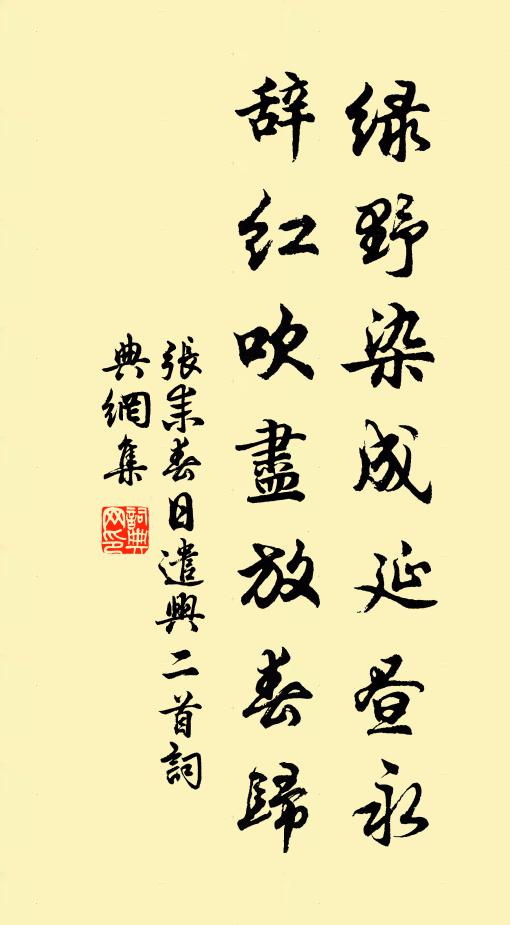 绿野染成延昼永
辞红吹盡放春歸
張耒春日遣興二首詞
典網集
詞典网印